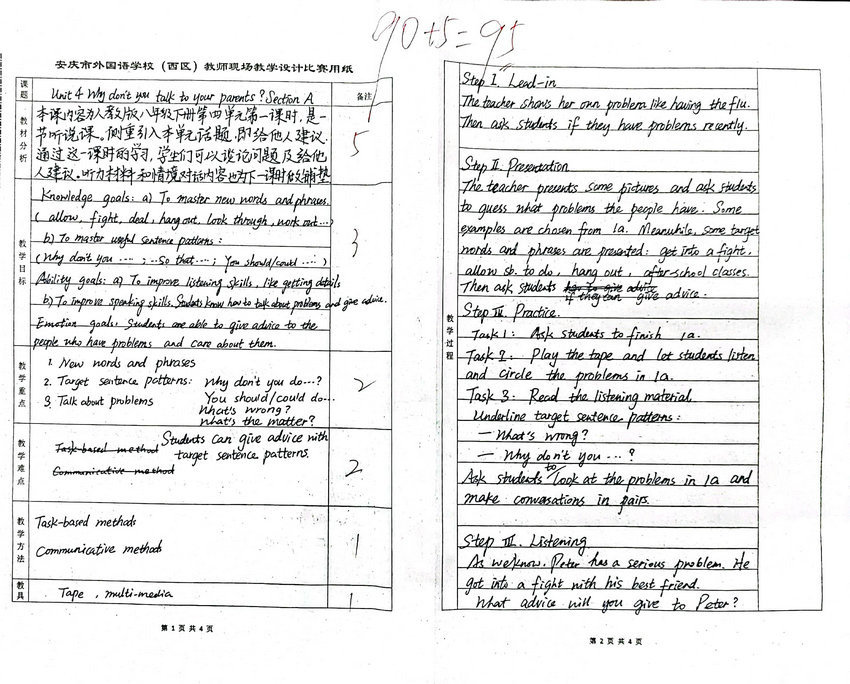 90+5=95
安庆市外国语学校（西区）教师现场教学设计比赛用纸
课题
Unit 4 Why don't you talk to your parents? Section A
备注
1
教材分析
本课内容为人教版八年级下册第四单元第一课时，是一
节听说课。侧重引入本单元话题，即给他人建议.
通过这一课时的学习，学生们可以谈论问题及给他
人建议。听力材料和情境对话内容也为下一课时做铺垫
5
教学目标
Knowledge goals: a) To master new words and phrases.
( allow, fight, deal, hang out, look through, work out…)
b) To master useful sentence patterns:
(Why don't you ……; …So that……; You should/could ……)
Ability goals: a) To improve listening skills, like getting details
b) To improve speaking skills. Students know how to talk about problems and give advice.
Emotion goals: Students are able to give advice to the
people who have problems and care about them.
3
教学重点
1. New words and phrases
2. Target sentence patterns: Why don't you do…?
3. Talk about problems You should/could do…
What's wrong?
What's the matter?
2
教学难点
Task-based method Students can give advice with
target sentence patterns.
Communicative method
2
教学方法
Task-based methods
Communicative methods
1
教具
Tape, multi-media
1
第 1 页 共 4 页
教学过程
Step I. Lead-in
The teacher shows her own problem like having the flu.
Then ask students if they have problems recently.
Step II. Presentation
The teacher presents some pictures and ask students
to guess what problems the people have. Some
examples are chosen from 1a. Meanwhile, some target
words and phrases are presented: get into a fight,
allow sb. to do, hang out, after-school classes.
Then ask students how to give advice
if they can give advice.
Step III. Practice.
Task 1: Ask students to finish 1a.
Task 2: Play the tape and let students listen
and circle the problems in 1a.
Task 3: Read the listening material.
Underline target sentence patterns:
— What's wrong?
— Why don't you …?
Ask students to look at the problems in 1a and
make conversations in pairs.
Step III. Listening
As we know, Peter has a serious problem. He
got into a fight with his best friend.
What advice will you give to Peter?
第 2 页 共 4 页